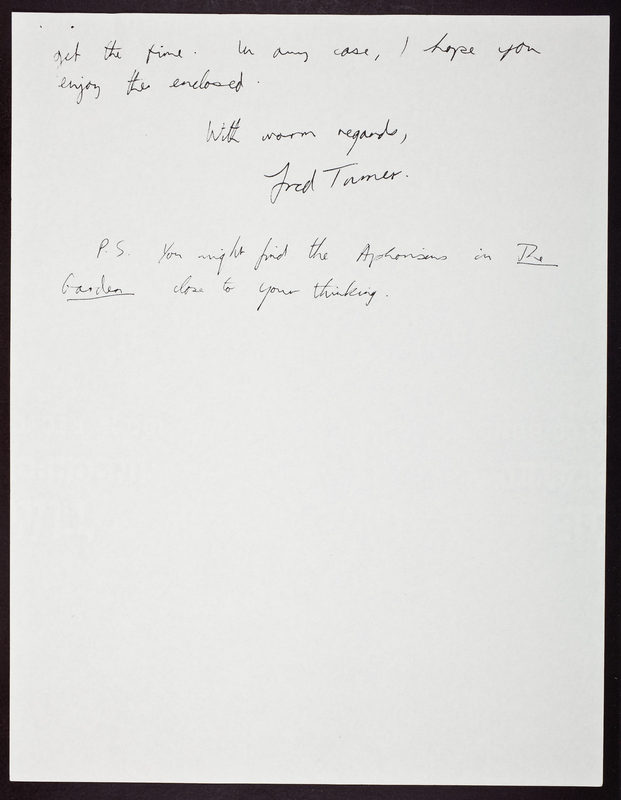 get the time. In any case, I hope you
enjoy the enclosed.
With warm regards,
Fred Turner.
P.S. You might find the Aphorisms in The
Garden close to your thinking.